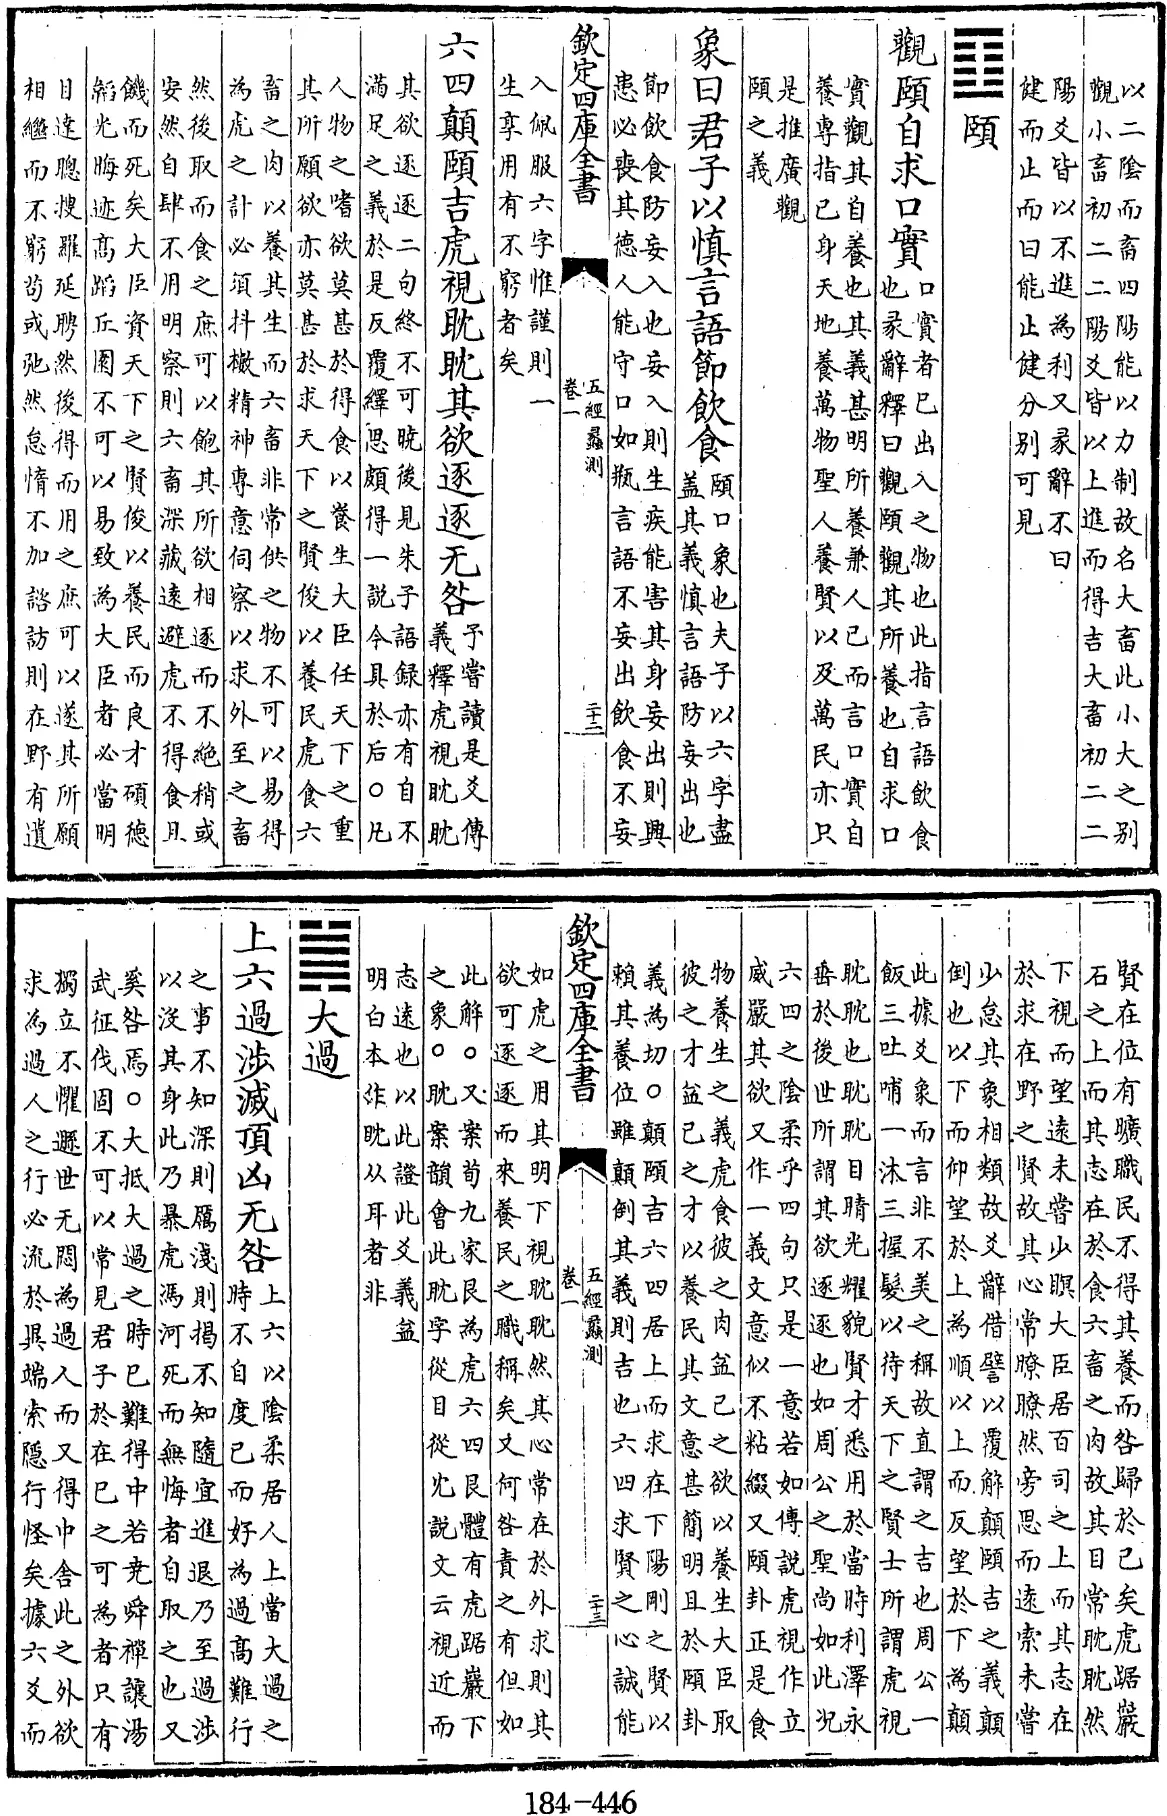 以二陰而畜四陽能以力制故名大畜此小大之别
觀小畜初二二陽爻皆以上進而得吉大畜初二二
陽爻皆以不進為利又彖辭不曰
健而止而曰能止健分别可見
頤
觀頤自求口實
口實者已出入之物也此指言語飲食
也彖辭釋曰觀頤觀其所養也自求口
實觀其自養也其義甚明所養兼人已而言口實自
養專指已身天地養萬物聖人養賢以及萬民亦只
是推廣觀
頤之義
象曰君子以慎言語節飲食
頤口象也夫子以六字盡
蓋其義慎言語防妄出也
節飲食防妄入也妄入則生疾能害其身妄出則興
患必喪其德人能守口如瓶言語不妄出飲食不妄
欽定四庫全書
五經蠡測
卷一
二十二
入佩服六字惟謹則一
生享用有不窮者矣
六四顛頤吉虎視眈眈其欲逐逐无咎
予嘗讀是爻傳
義釋虎視眈眈
其欲逐逐二句終不可曉後見朱子語録亦有自不
滿足之義於是反覆繹思頗得一説今具於后○凡
人物之嗜欲莫甚於得食以養生大臣任天下之重
其所願欲亦莫甚於求天下之賢俊以養民虎食六
畜之肉以養其生而六畜非常供之物不可以易得
為虎之計必須抖擻精神專意伺察以求外至之畜
然後取而食之庶可以飽其所欲相逐而不絶稍或
安然自肆不用明察則六畜深藏遠避虎不得食且
饑而死矣大臣資天下之賢俊以養民而良才碩德
韜光晦迹髙蹈丘園不可以易致為大臣者必當明
目達聰搜羅延聘然後得而用之庶可以遂其所願
相繼而不窮茍或弛然怠惰不加諮訪則在野有遺
賢在位有曠職民不得其養而咎歸於已矣虎踞巖
石之上而其志在於食六畜之肉故其目常眈眈然
下視而望遠未嘗少瞑大臣居百司之上而其志在
於求在野之賢故其心常瞭瞭然旁思而遠索未嘗
少怠其象相類故爻辭借譬以覆解顛頤吉之義顛
倒也以下而仰望於上為順以上而反望於下為顛
此據爻象而言非不美之稱故直謂之吉也周公一
飯三吐哺一沐三握髮以待天下之賢士所謂虎視
眈眈也眈眈目睛光耀貌賢才悉用於當時利澤永
垂於後世所謂其欲逐逐也如周公之聖尚如此况
六四之陰柔乎四句只是一意若如傳説虎視作立
威嚴其欲又作一義文意似不粘綴又頤卦正是食
物養生之義虎食彼之肉益己之欲以養生大臣取
彼之才益已之才以養民其文意甚簡明且於頤卦
義為切○顛頤吉六四居上而求在下陽剛之賢以
賴其養位雖顛倒其義則吉也六四求賢之心誠能
欽定四庫全書
五經蠡測
卷一
二十三
如虎之用其明下視眈眈然其心常在於外求則其
欲可逐逐而來養民之職稱矣又何咎責之有但如
此解○又案荀九家艮為虎六四艮體有虎踞巖下
之象○眈案韻會此眈字從目從冘説文云視近而
志逺也以此證此爻義益
明白本作眈从耳者非
大過
上六過涉滅頂凶无咎
上六以陰柔居人上當大過之
時不自度已而好為過髙難行
之事不知深則厲淺則揭不知隨宜進退乃至過涉
以沒其身此乃暴虎馮河死而無悔者自取之也又
奚咎焉○大抵大過之時已難得中若堯舜禪讓湯
武征伐固不可以常見君子於在已之可為者只有
獨立不懼遯世无悶為過人而又得中舍此之外欲
求為過人之行必流於異端索隠行怪矣據六爻而
184-446